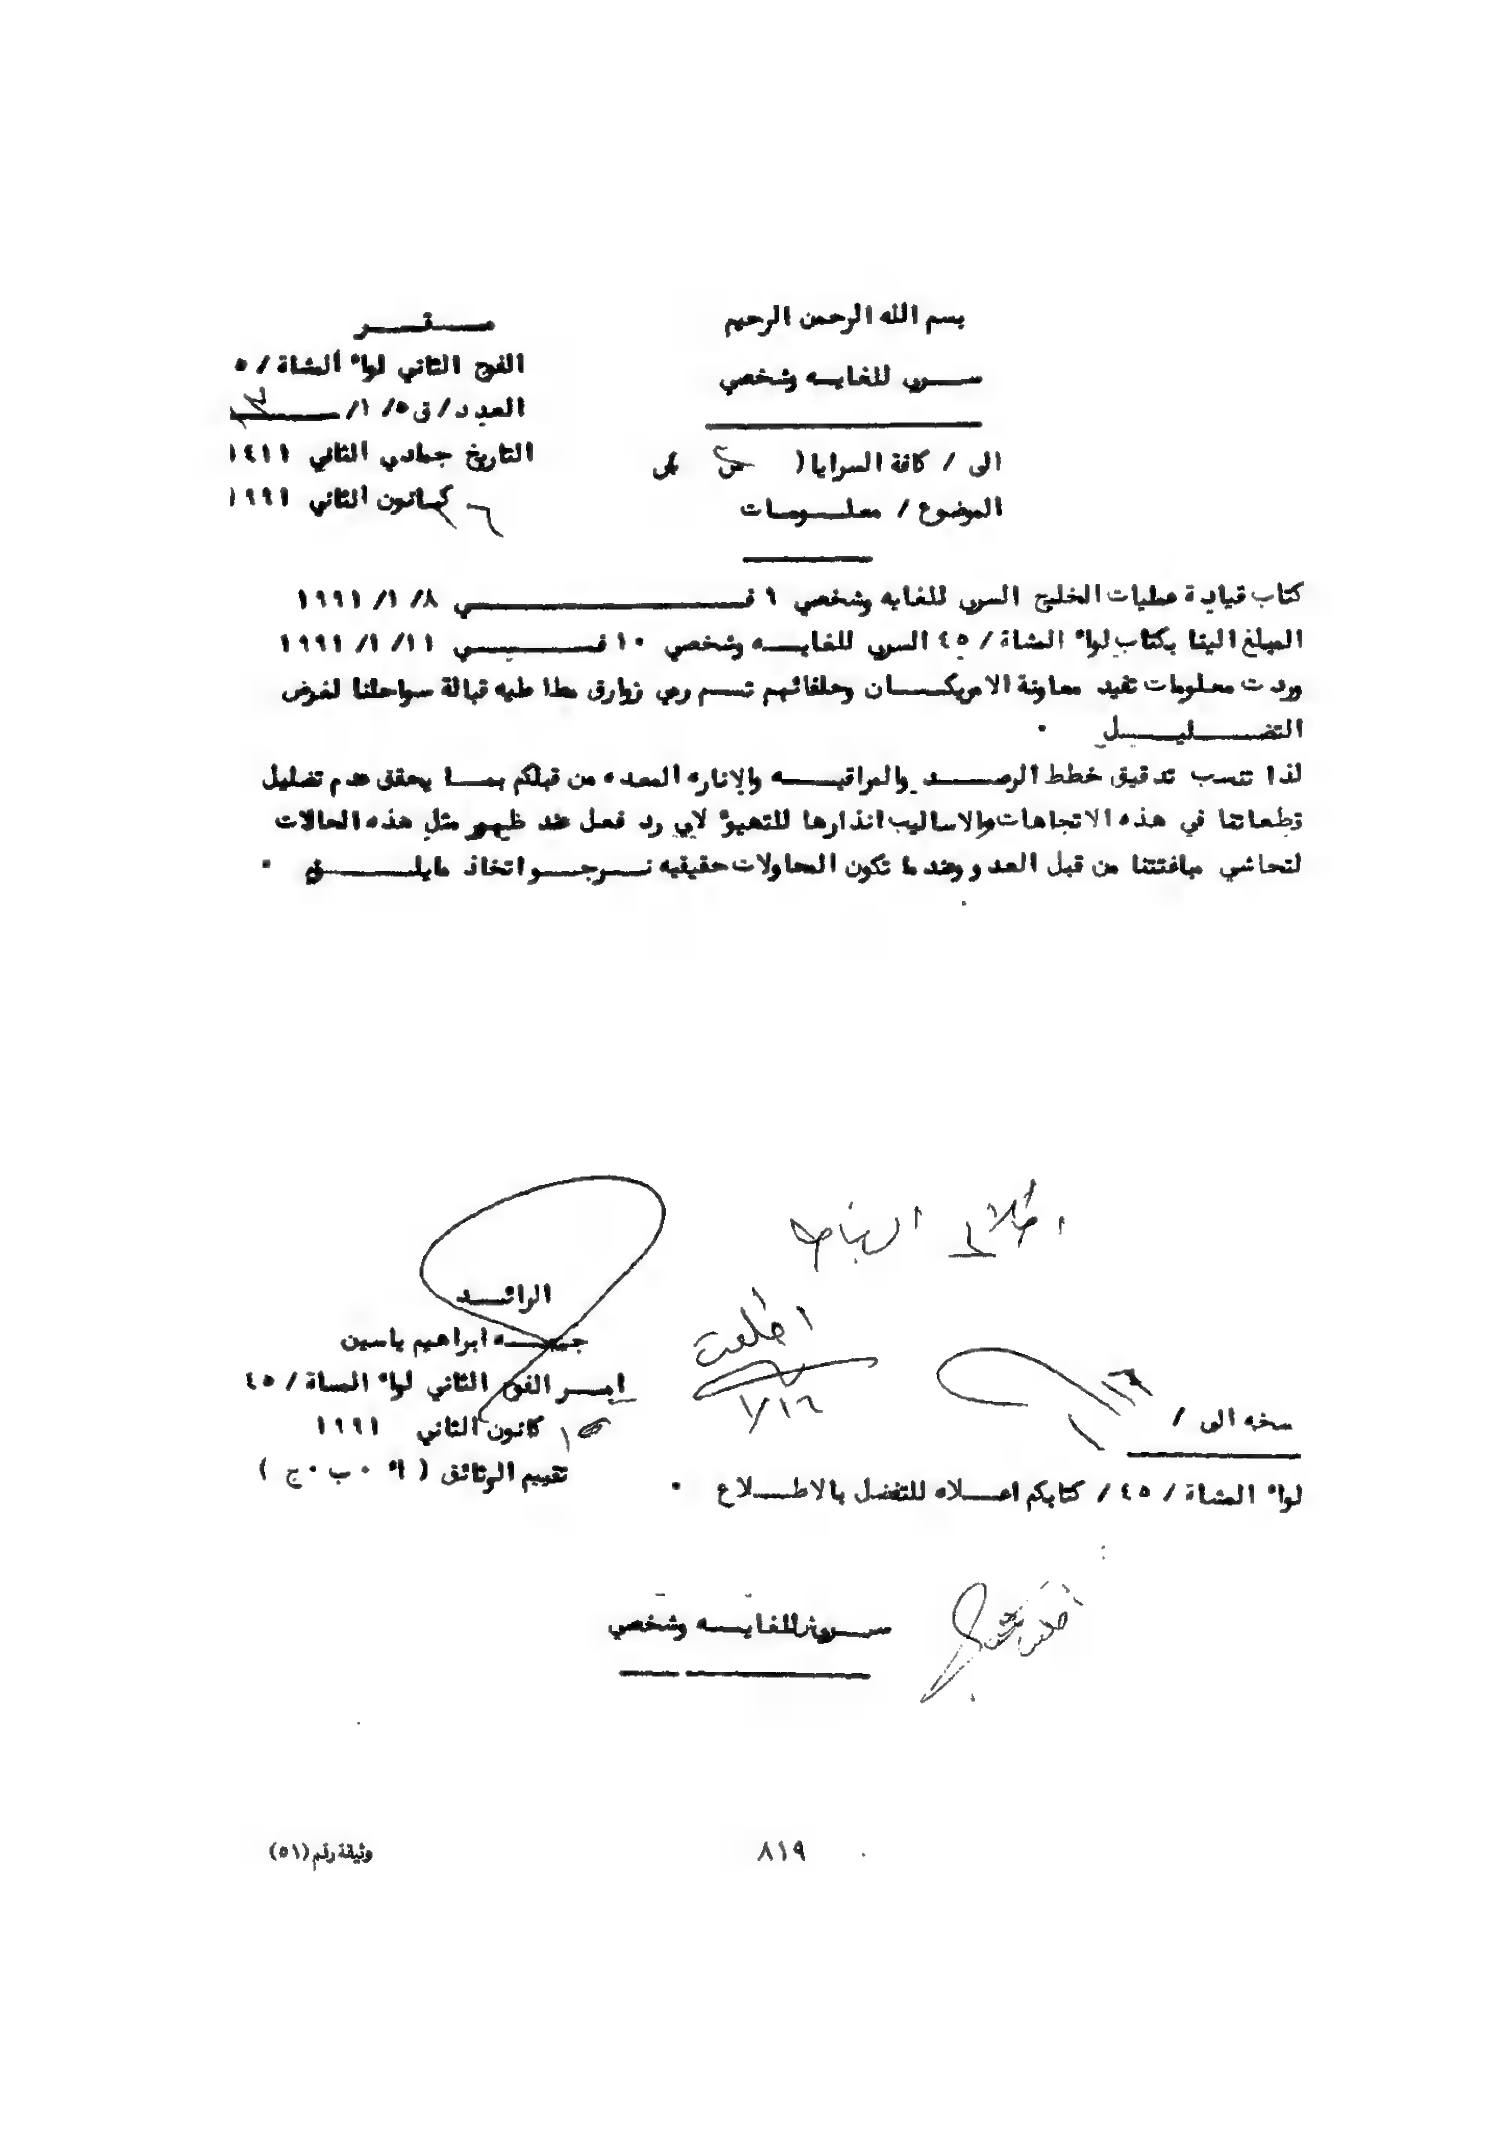 بسم الله الرحمن الرحيم
سري للغايه وشخصي
مقر
الفوج الثاني لواء المشاة / ٥
العدد / ق ٥ / ١ /
التاريخ جمادي الثاني ١٤١١
كانون الثاني ١٩٩١
الى / كافة السرايا (
الموضوع / معلومات
كتاب قيادة عمليات الخليج السري للغايه وشخصي ٩ في ٨ /١ /١٩٩١
المبلغ الينا بكتاب لواء المشاة / ٤٥ السري للغايه وشخصي ١٠ في ١١ /١ /١٩٩١
وردت معلومات تفيد معاونة الامريكان وحلفائهم تسم رمي زوارق مطاطيه قبالة سواحلنا لغرض
التضليل ٠
لذا تنسب تدقيق خطط الرصد والمراقبه والاناره المعده من قبلكم بما يحقق عدم تضليل
قطعاتنا في هذه الاتجاهات والاساليب انذارها للتهيؤ لاي رد فعل عند ظهور مثل هذه الحالات
لتحاشي مباغتتنا من قبل العدو وعندما تكون المحاولات حقيقيه نرجو اتخاذ مايلزم ٠
اطلعت
١٦ /١
الرائد
ابراهيم ياسين
امر الفوج الثاني لواء المساة / ٤٥
١٥ كانون الثاني ١٩٩١
تقييم الوثائق ( أ ٠ ب ٠ ج )
سخه الى /
لواء المشاة / ٤٥ / كتابكم اعلاه للتفضل بالاطلاع ٠
اطلعت
سري للغايه وشخصي
٨١٩
وثيقة رقم (٥١)